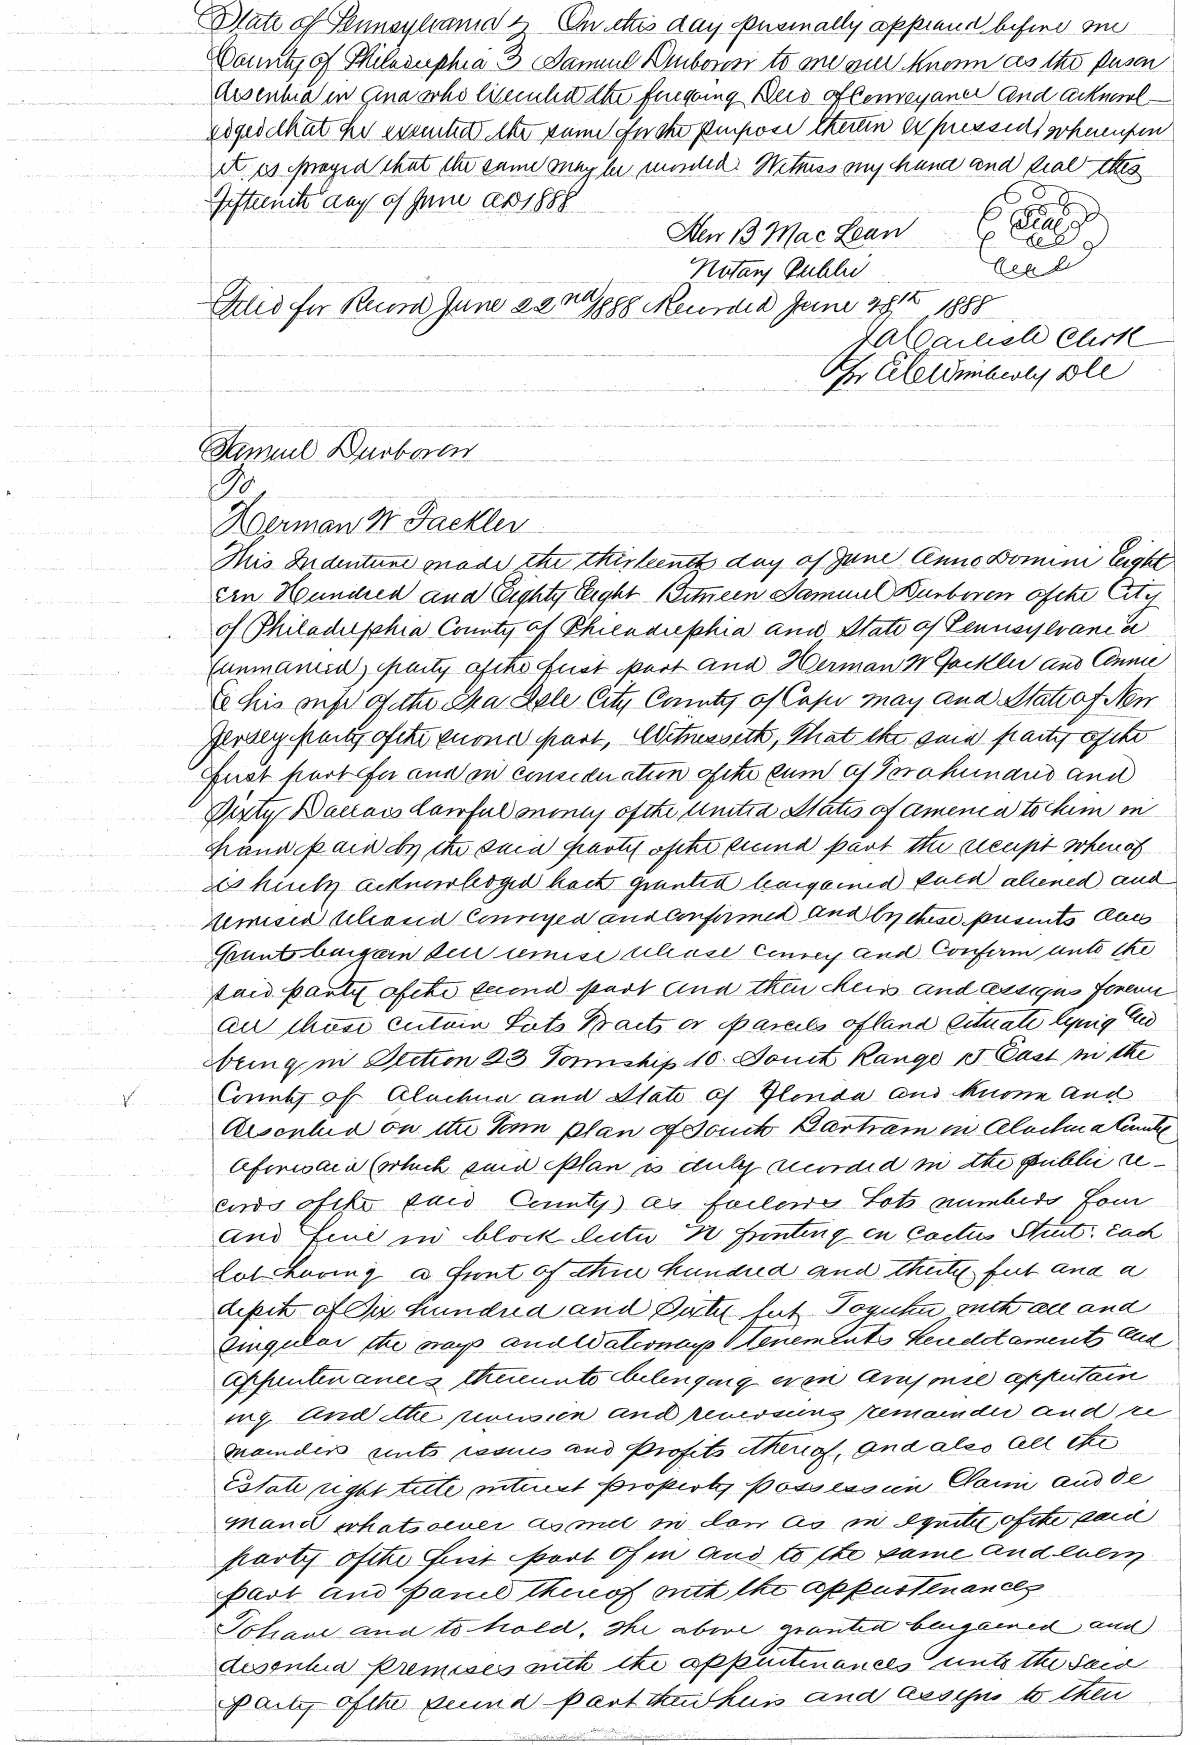 State of Pennsylvania } On this day personally appeared before me
County of Philadelphia } Samuel Durboren to me well known as the person
described in and who executed the foregoing Deed of Conveyance and acknowl-
edged that he executed the same for the purpose therein expressed, whereupon
it is prayed that the same may be recorded. Witness my hand and seal this
fifteenth day of June AD 1888
Hen B Mac Lean
Seal
Notary Public
Filed for Record June 22nd 1888 Recorded June 28th 1888
J A Carlisle Clerk
Per Wimberly DC
Samuel Durboren
To
Herman W Fackler
This Indenture made the thirteenth day of June Anno Domini Eight
een Hundred and Eighty Eight Between Samuel Durboren of the City
of Philadelphia County of Philadelphia and State of Pennsylvania
(unmarried) party of the first part and Herman W Fackler and Annie
C his wife of the Sea Isle City County of Cape may and State of New
Jersey party of the second part, Witnesseth, That the said party of the
first part for and in consideration of the sum of Two hundred and
Sixty Dollars lawful money of the United States of America to him in
hand paid by the said party of the second part the receipt whereof
is hereby acknowledged hath granted bargained sold aliened and
remised released conveyed and confirmed and by these presents does
Grant bargain sell remise release convey and Confirm unto the
said party of the second part and their heirs and assigns forever
all those certain Lots Tracts or parcels of land situate lying and
being in Section 23 Township 10 South Range 18 East in the
County of Alachua and State of Florida and known and
described on the Town plan of South Bartram in Alachua County
aforesaid (which said plan is duly recorded in the public re-
cords of the said County) as follows Lots numbers four
and five in block letter N fronting on Cactus Street: each
lot having a front of three hundred and thirty feet and a
depth of Six hundred and Sixty feet Together with all and
singular the ways and Waterways tenements hereditaments and
appurtenances thereunto belonging or in anywise appertain
ing and the reversion and reversions remainder and re
mainders rents issues and profits thereof, and also all the
Estate right title interest property possession Claim and de
mand whatsoever as well in law as in equity of the said
party of the first part of in and to the same and every
part and parcel thereof with the appurtenances
To have and to hold, the above granted bargained and
described premises with the appurtenances unto the said
party of the second part their heirs and assigns to their